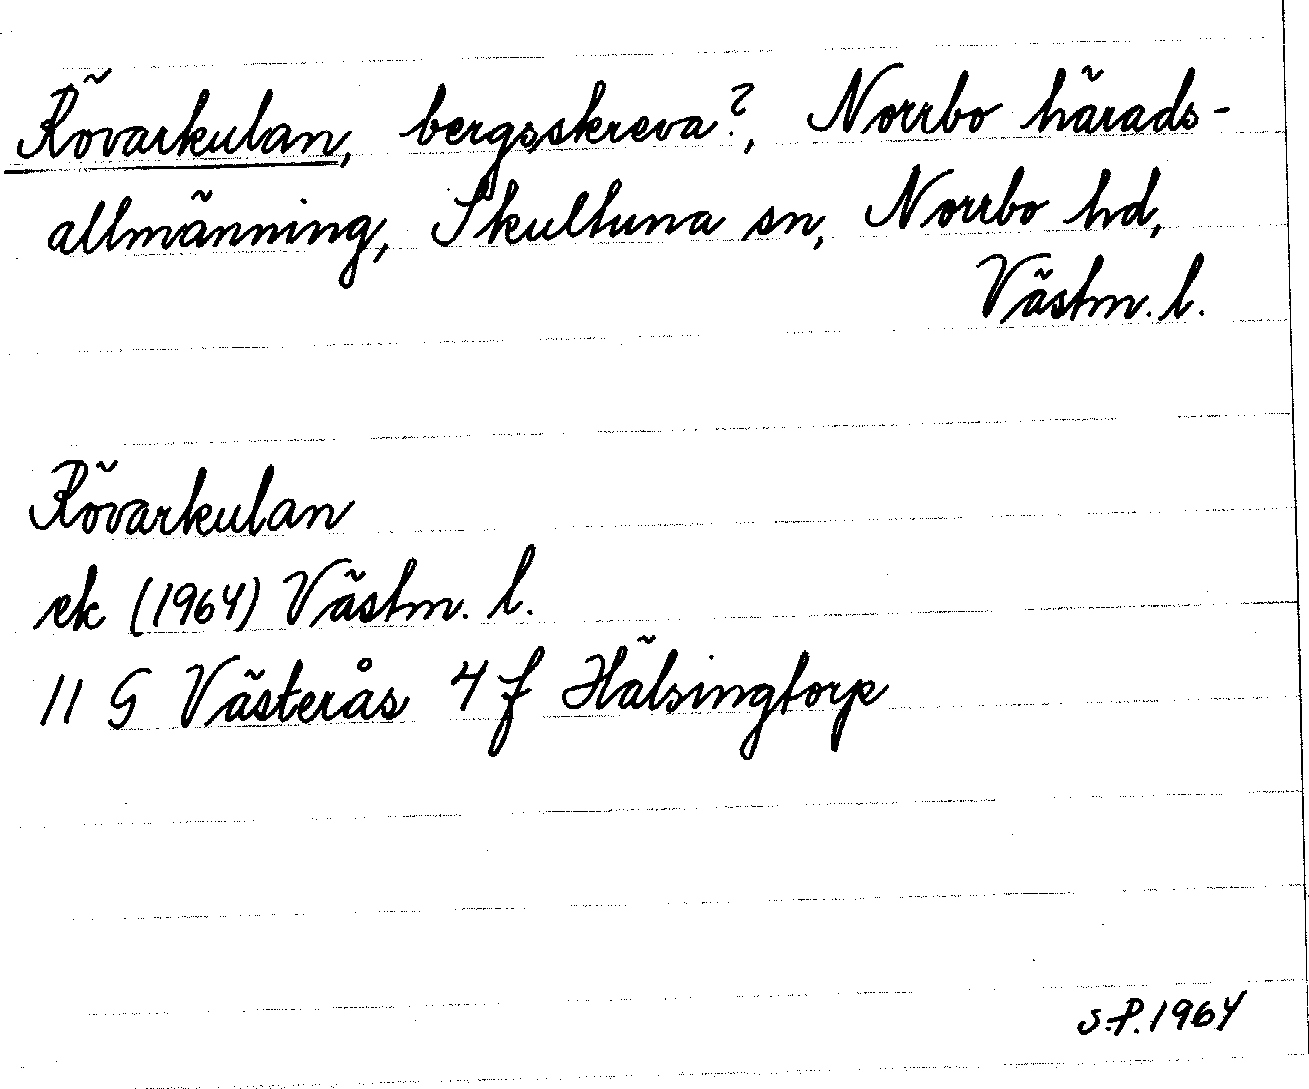 Rövarkulan, bergsskreva?, Norrbo härads-
allmänning, Skultuna sn, Norrbo hd,
Västm. l.
Rövarkulan
ek (1964) Västm. l.
11 G Västerås 4 f Hälsingtorp
S.P. 1964